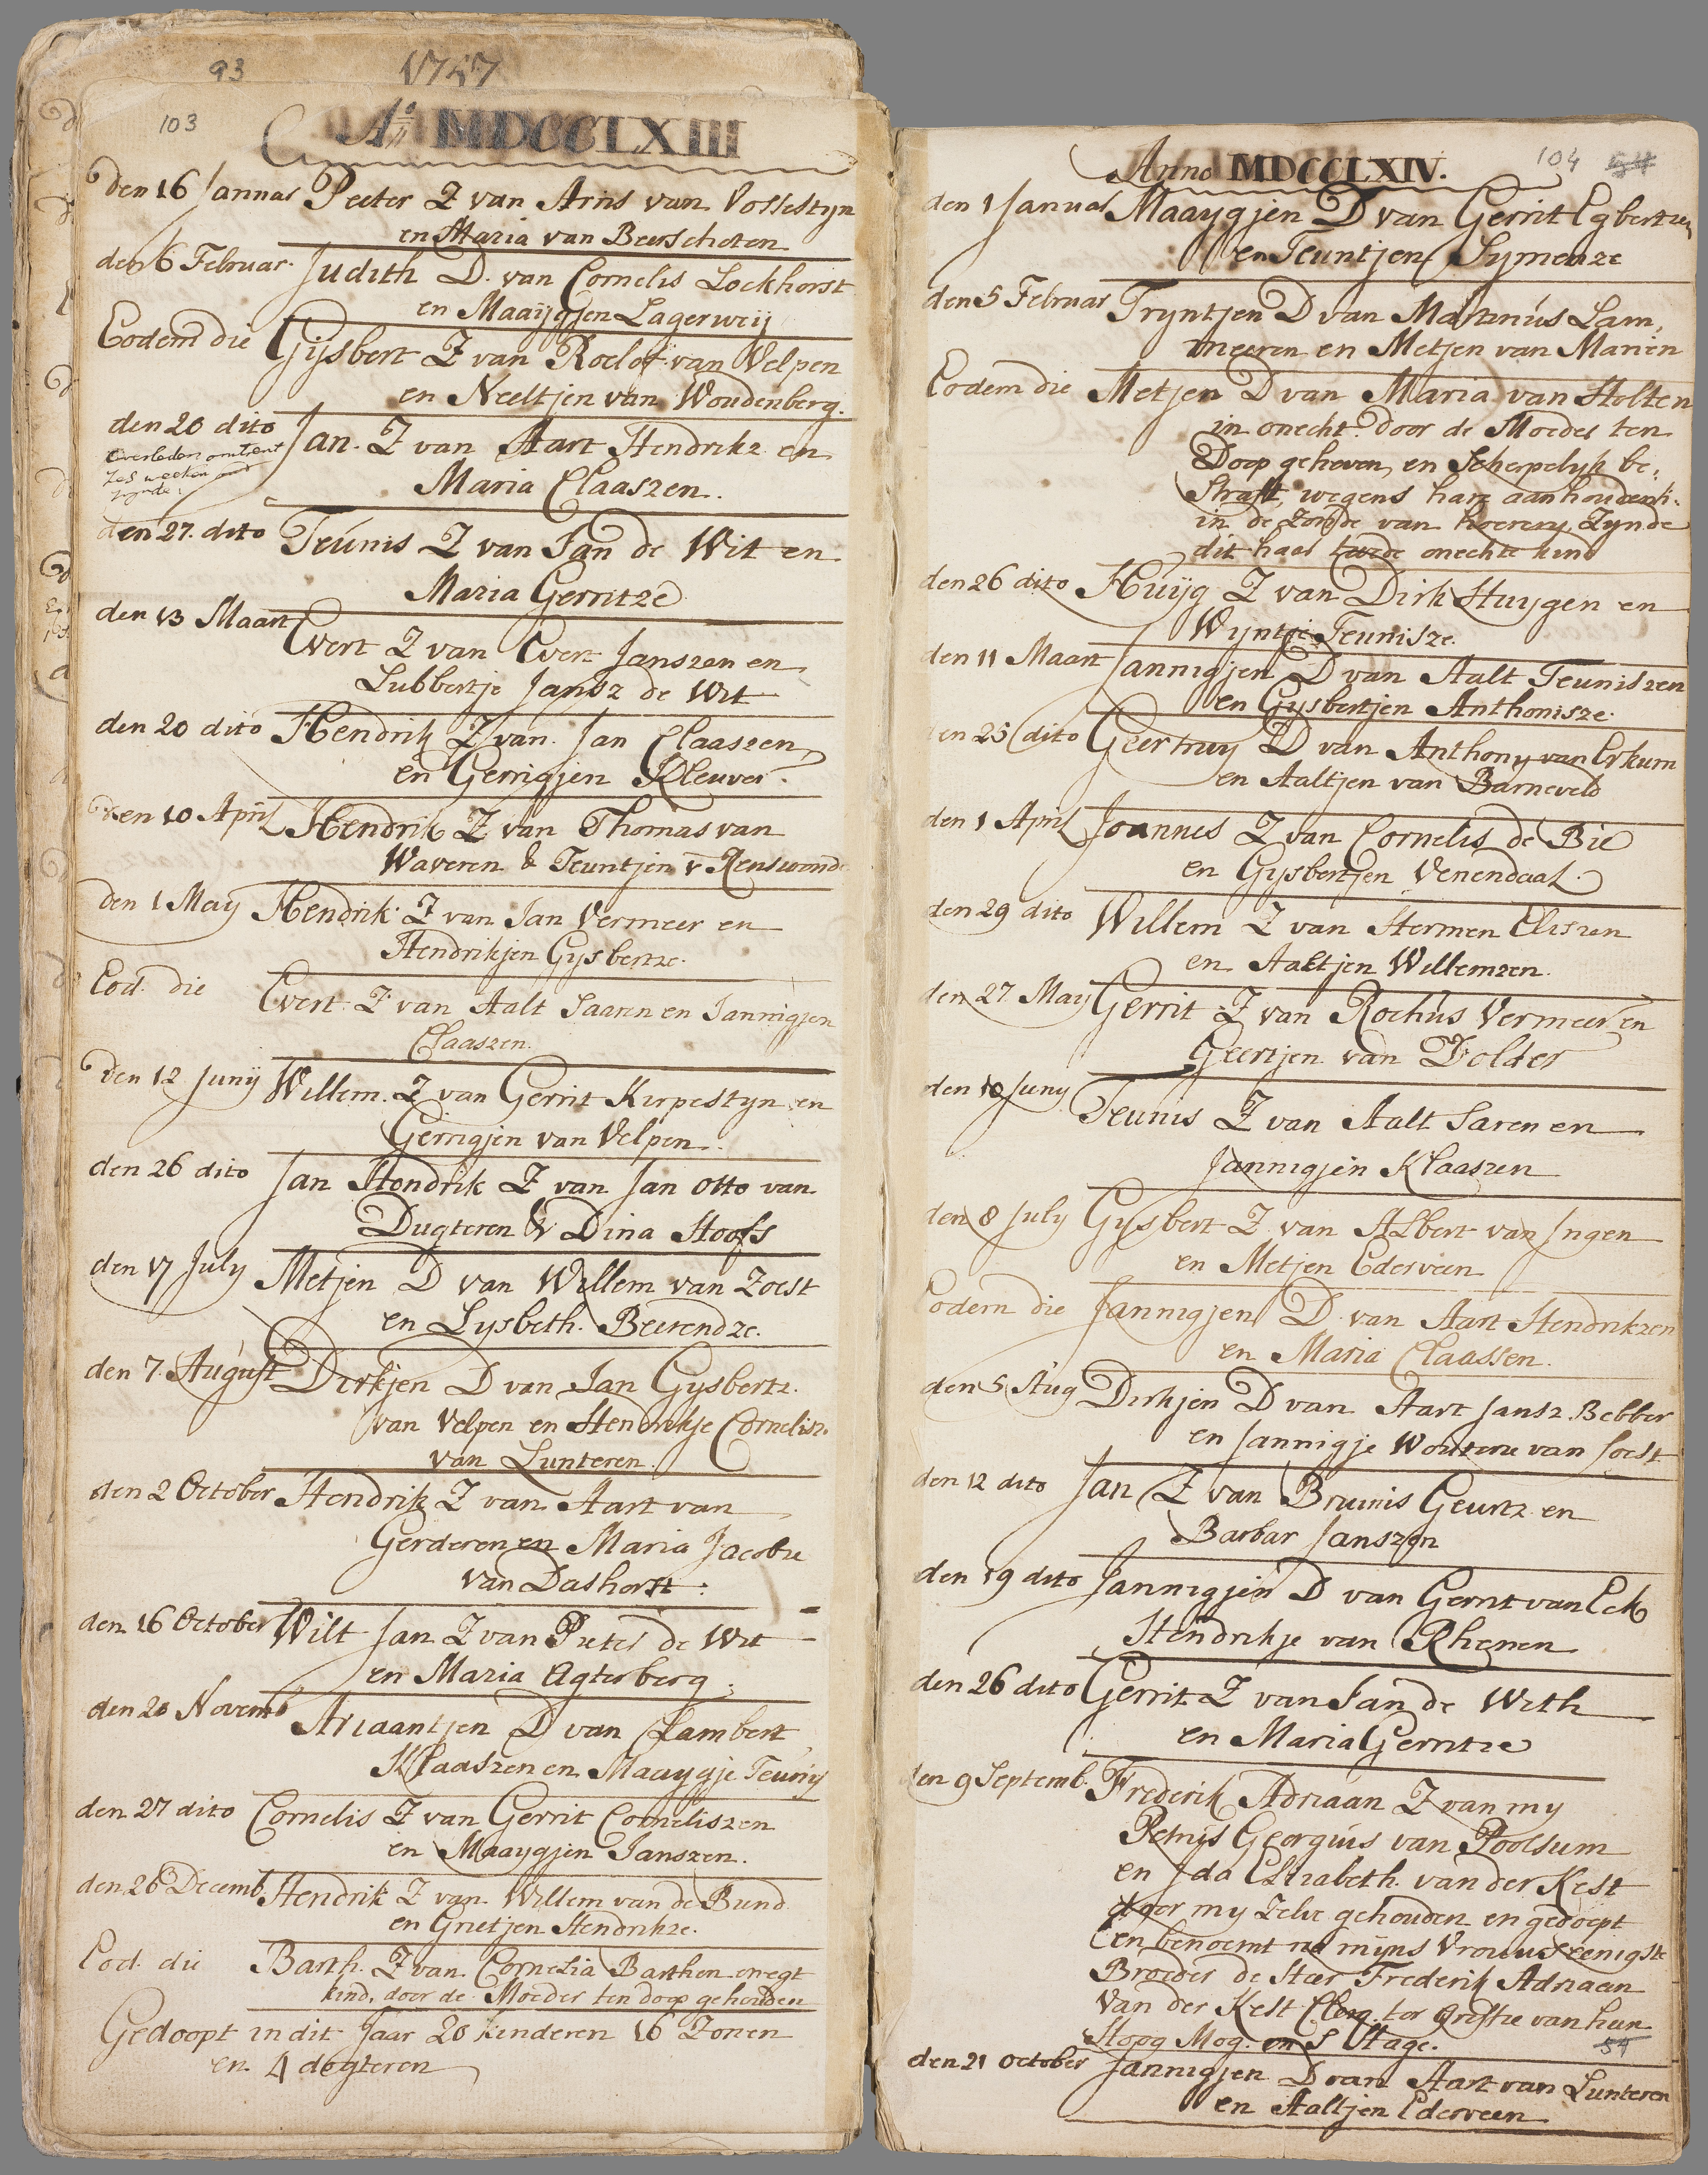 93
1757
103
Aº MDCCLXIII
den 16 Januar Peeter Z van Aris van Vossestyn
en Maria van Beerschoten
den 6 Februar. Judith D. van Cornelis Lockhorst
en Maaijgjen Lagerweij
Eodem die Gijsbert Z van Roelof van Velpen
en Neeltjen van Woudenberg.
den 20 dito Jan. Z van Aart Hendrikz en
overleden omtrent
zes weeken oud
zynde.
Maria Claaszen.
den 27. dito Teúnis Z van Jan de Wit en
Maria Gerritze
den 13 Maart Evert Z van Evert Janszen en
Lubbertje Jansz de Wit
den 20 dito Hendrik Z van Jan Claaszen
en Gerrigjen Kleuver.
den 10 April Hendrik Z van Thomas van
Waveren & Teuntjen v Renswoude
den 1 May Hendrik Z van Jan Vermeer en
Hendrikjen Gysbertze.
Eod. die Evert Z van Aalt Saaren en Jannigjen
Claaszen.
den 12 Junij Willem. Z van Gerrit Kirpestyn en
Gerrigjen van Velpen.
den 26 dito Jan Hendrik Z van Jan Otto van
Dugteren & Dina Hoofs
den 17 July Metjen D van Willem van Zoest
en Lysbeth. Beerendze.
den 7. Augúst Dirkjen D van Jan Gysbertz.
van Velpen en Hendrikje Cornelisz.
van Lunteren.
den 2 October Hendrik Z van Aart van
Gerderen en Maria Jacobze
van Dashorst.
den 16 October Wilt Jan Z van Pieter de Wit
en Maria Agterberg.
den 20 Novemb Ariaantjen D van Lambert
Klaaszen en Maaygje Teúnis
den 27 dito Cornelis Z van Gerrit Corneliszen
en Maaygjen Janszen.
den 26 Decemb. Hendrik Z van Willem van de Bund
en Grietjen Hendrikze.
Eod. die Barth. Z van Cornelia Barthen onegt
kind, door de Moeder ten doop gehouden
Gedoopt in dit Jaar 20 kinderen 16 Zonen
en 4 dogteren
104
Anno MDCCLXIV.
den 1 Januar Maaygjen D van Gerrit Egbertzen
en Teuntjen Symenze
den 5 Februar Tryntjen D van Martinús Lam,
meeren en Metjen van Manen
Eodem die Metjen D van Maria van Holten
in onecht. door de Moeder ten
Doop geheven, en Scherpelyk be,
Straft, wegens hare aanhoudenh.
in de Zonde van hoerery, Zynde
dit haar onechte kind
den 26 dito Húijg Z van Dirk Huygen en
Wyntje Teunisze.
den 11 Maart Jannigjen D van Aalt Teuniszen
en Gysbertjen Anthonisze.
den 25 dito Geertruy D van Anthony van Erkum
en Aaltjen van Barneveld
den 1 April Joannes Z van Cornelis de Bie
en Gysbertjen Venendaal.
den 29 dito Willem Z van Hermen Eliszen
en Aaltjen Willemzen.
den 27. May Gerrit Z van Rochús Vermeer en
Geertjen van Dolder
den 10 Juny Teunis Z van Aalt Saren en
Jannigjen Klaaszen
den 8 July Gysbert Z van Albert van Ingen
en Metjen Ederveen
Eodem die Jannigjen D. van Aart Hendrikzen
en Maria Claassen.
den 5 Aug Dirkjen D van Aart Jansz. Bebber
en Jannigje Woutene van Soest
den 12 dito Jan Z van Bruinis Geurtz en
Barbar Janszen
den 19 dito Jannigjen D van Gerrit van Eck
Hendrikje van Rhenen
den 26 dito Gerrit Z van Jan de With
en Maria Gerritze
den 9 Septemb. Frederik Adriaan Z van my
Petrús Georgius van Poolsum
en Ida Elizabeth. van der Kest
door my Zelve gehouden en gedoopt
en benoemt na mijns Vrouws eenigste
Broeder de Heer Frederik Adriaan
Van der Kest Clerq tor Griffie van hun
Hoog Mog. en S Hage.
54
den 21 October Jannigjen D van Aart van Lunteren
en Aaltjen Ederveen